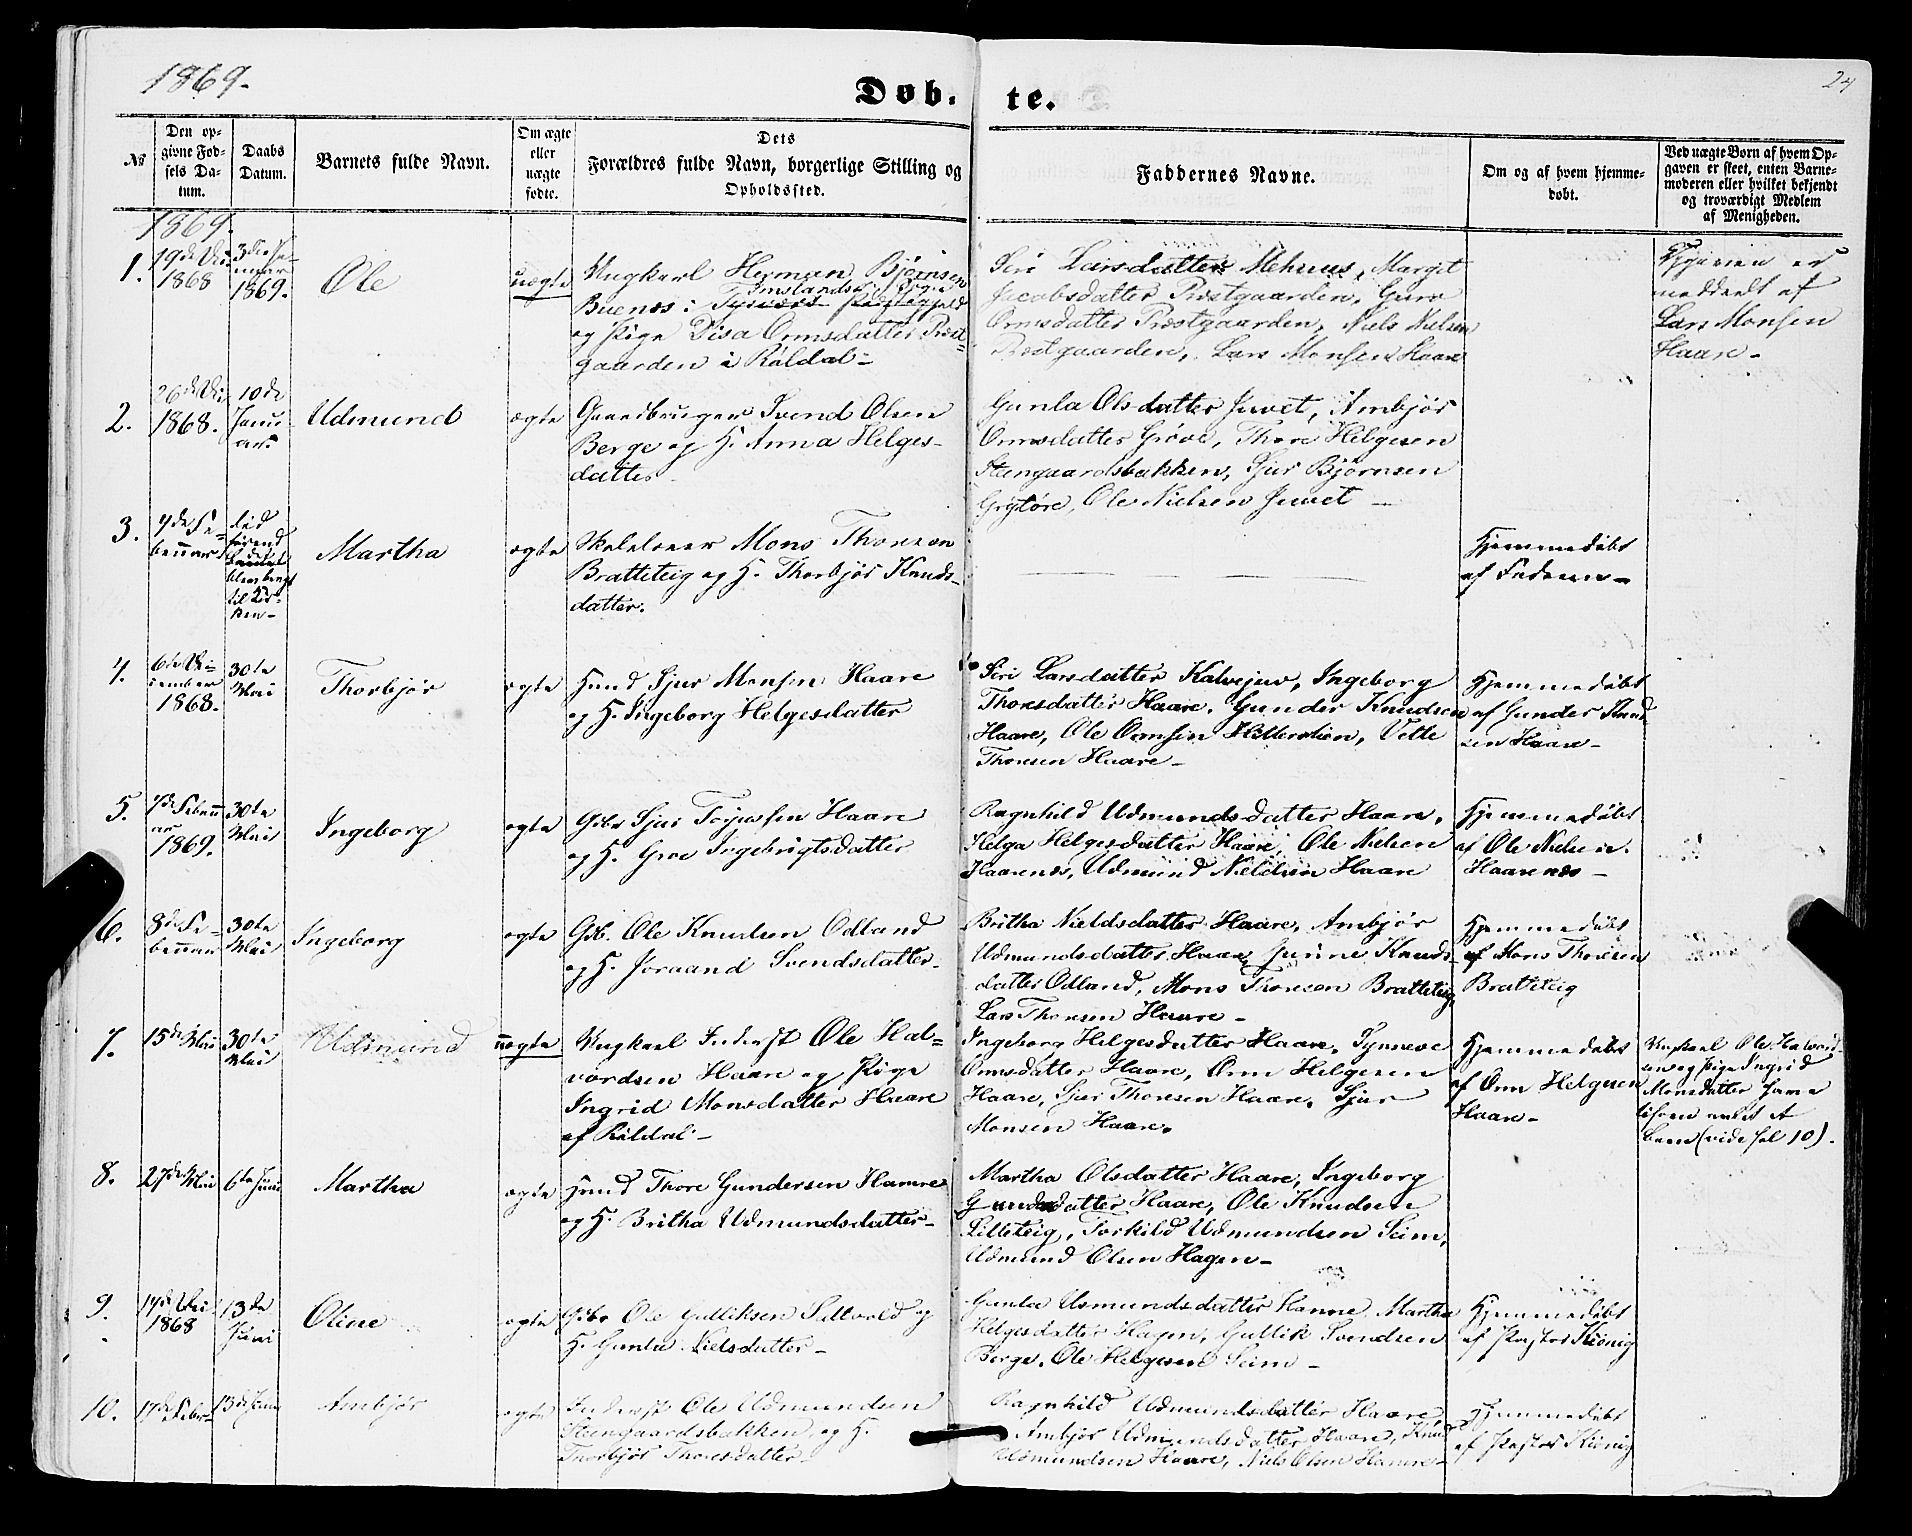 1869.
Døb. te.
24
No
Den op-
givne Fød-
sels Da-
tum.
Daabs
Datum.
Barnets fulde Navn.
Om ægte
eller
uægte
fødte.
Dets
Forældres fulde Navn, borgerlige Stilling og
Opholdssted.
Faddernes Navne.
Om og af hvem hjemme-
døbt.
Ved uægte Børn af hvem Op-
gaven er skeet, enten Barne-
moderen eller hvilket bekjendt
og troværdigt Medlem
af Menigheden.
1869.
1.
19de
1868
3die Ja-
nuar
1869.
Ole
uægte
Ungkarl Herman Bjørnsen
Buenæs i
og Pige Disa Ormsdatter Præst-
gaarden i Røldal -
Siri Larsdatter Mehuus, Margit
Jacobsdatter Præstgaarden, Guro
Ormsdatter Præstgaarden, Niels Nielsen
Præstgaarden, Lars Monsen Haare
er
meddeelt af
Lars Monsen
Haare -
2.
26de
1868.
10de
Janu
ar
Udmund
ægte
Gaardbruger Svend Olsen
Berge og H. Anna Helges-
datter -
Gunla Olsdatter Juvet, Ambjør
Ormsdatter Grøve, Thore Helgesen
Steengaardsbakken, Sjur Bjørnsen
Grytøre, Ole Nielsen Juvet -
3.
7de Fe-
bruar
død
førend
det
blev bragt
til Kir-
ken -
Martha
ægte
Skolelærer Mons Thoresen
Bratteteig og H. Thorbjør Knuds-
datter.
Hjemmedøbt
af Faderen -
4.
6te De-
cember
1868.
30te
Mai
Thorbjør
ægte
Huusmd Sjur Monsen Haare
og H. Ingeborg Helgesdatter
Siri Larsdatter Kalvejuv, Ingeborg
Thoresdatter Haare, Gunder Knudsen
Haare, Ole Ormsen Hellerslien, Vetle
Thoresen Haare -
Hjemmedøbt
af Gunder Knud-
sen Haare -
5.
7de Febru
ar
1869.
30te
Mai
Ingeborg
ægte
Gdbr Sjur Torjussen Haare
og H. Groe Ingebrigtsdatter
Ragnhild Udmundsdatter Haare,
Helga Helgesdatter Haare, Ole Nielsen
Haarenæs, Udmund Nieldsen Haare
Hjemmedøbt
af Ole Nielsen
Haarenæs -
6.
8de Fe-
bruar
30te
Mai
Ingeborg
ægte
Gdb. Ole Knudsen Odland
og H. Joraand Svendsdatter -
Britha Nieldsdatter Haare, Ambjør
Udmundsdatter Haare, Jinne Knuds-
datter Odland, Mons Thoresen Bratteteig,
Lars Thoresen Haare -
Hjemmedøbt
af Mons Thoresen
Bratteteig
7.
15de Mai
30te
Mai
Udmund
uægte
Ungkarl Inderst Ole Hal-
vordsen Haare og Pige
Ingrid Monsdatter Haare
af Røldal -
Ingeborg Helgesdatter Haare, Synneve
Ormsdatter Haare, Orm Helgesen
Haare, Sjur Thoresen Haare, Sjur
Monsen Haare.
Hjemmedøbt
af Orm Helgesen
Haare -
Ungkarl Ole Halvord-
sen og Pige Ingrid
Monsdatter have
tilforn avlet et
barn (vide fol 10).
8.
27de Mai
6te Juni
Martha
ægte
Huusmd Thore Gundersen Hamre
og H. Britha Udmundsdatter -
Martha Olsdatter Haare, Ingeborg
Gundersdatter Haare, Ole Knudsen
Lilleteig, Torkild Udmundsen Seim,
Udmund Olsen Hagen -
9.
1868
13de
Juni
Oline
ægte
Gdbr Ole Gulliksen og
H. Gunla Nielsdatter -
Gunla Asmundsdatter Hamre, Martha
Helgesdatter Hagen, Gullik Svendsen
Berge, Ole Helgesen Seim -
Hjemmedøbt
af Pastor Kønig
10.
17de Febr
13de Juni
Ambjør
ægte
Inderst Ole Udmundsen
Steengaardsbakken og H.
Thorbjør Thoresdatter -
Ragnhild Udmundsdatter Haare
Ambjør Udmundsdatter Haare, Knud
Udmundsen Haare, Niels Olsen Hamre -
Hjemmedøbt
af Pastor Kønig